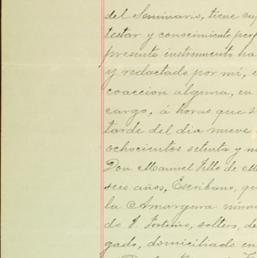 del Seminario, tiene
testar y conocimiento
presente instrumento
y redactado por mi,
coaccion alguna, en
cargo, á horas que
tarde del dia nueve
ochocientos setenta y
Don Manuel Tello de
seis años, Escribano,
la Amargura
do soltero, de
gado, domiciliado en